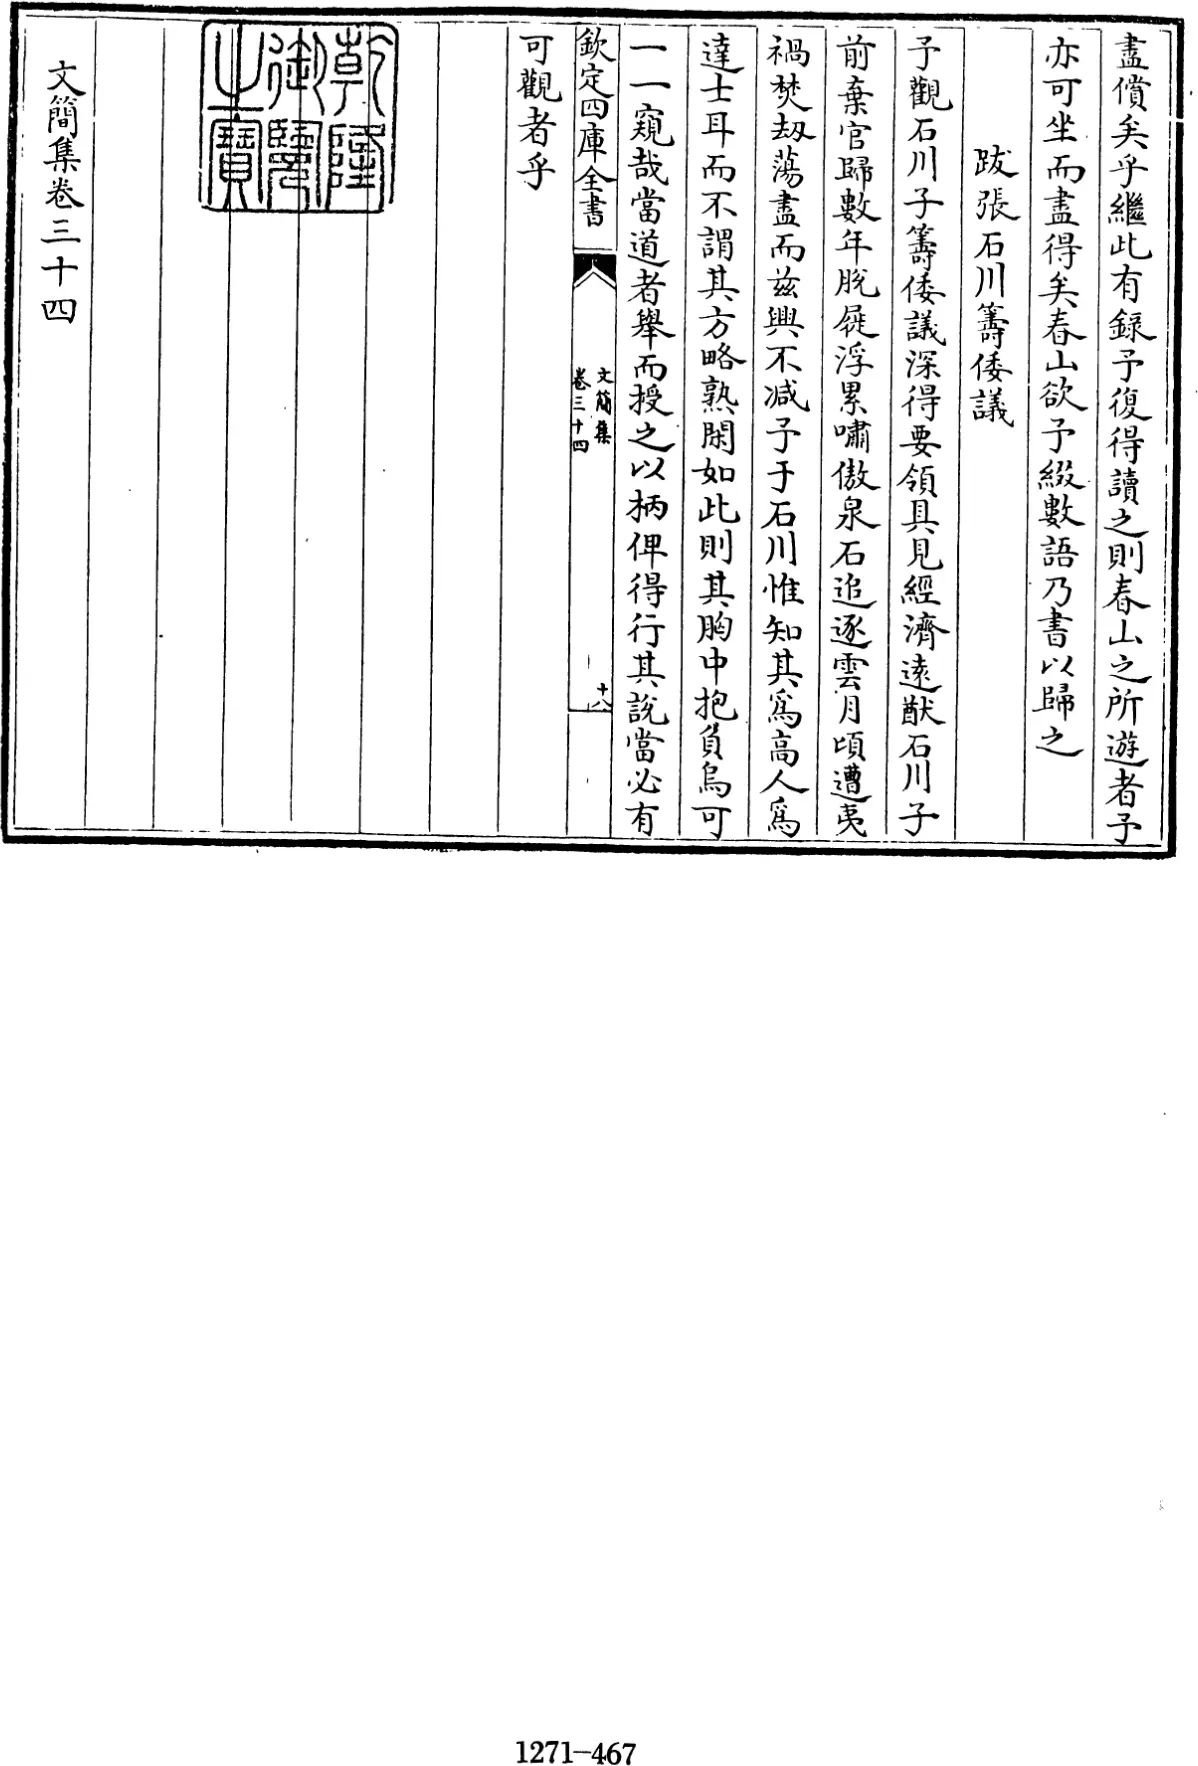 盡償矣乎繼此有録予復得讀之則春山之所遊者予
亦可坐而盡得矣春山欲予綴數語乃書以歸之
跋張石川籌倭議
予觀石川子籌倭議深得要領具見經濟遠猷石川子
前棄官歸數年脱屣浮累嘯傲泉石追逐雲月頃遭夷
禍焚刼蕩盡而兹興不减予于石川惟知其爲高人爲
達士耳而不謂其方略熟閑如此則其胸中抱負烏可
一一窺哉當道者舉而授之以柄俾得行其説當必有
欽定四庫全書
文簡集
卷三十四
十八
可觀者乎
乾隆
御覽
之寶
文簡集卷三十四
1271-467